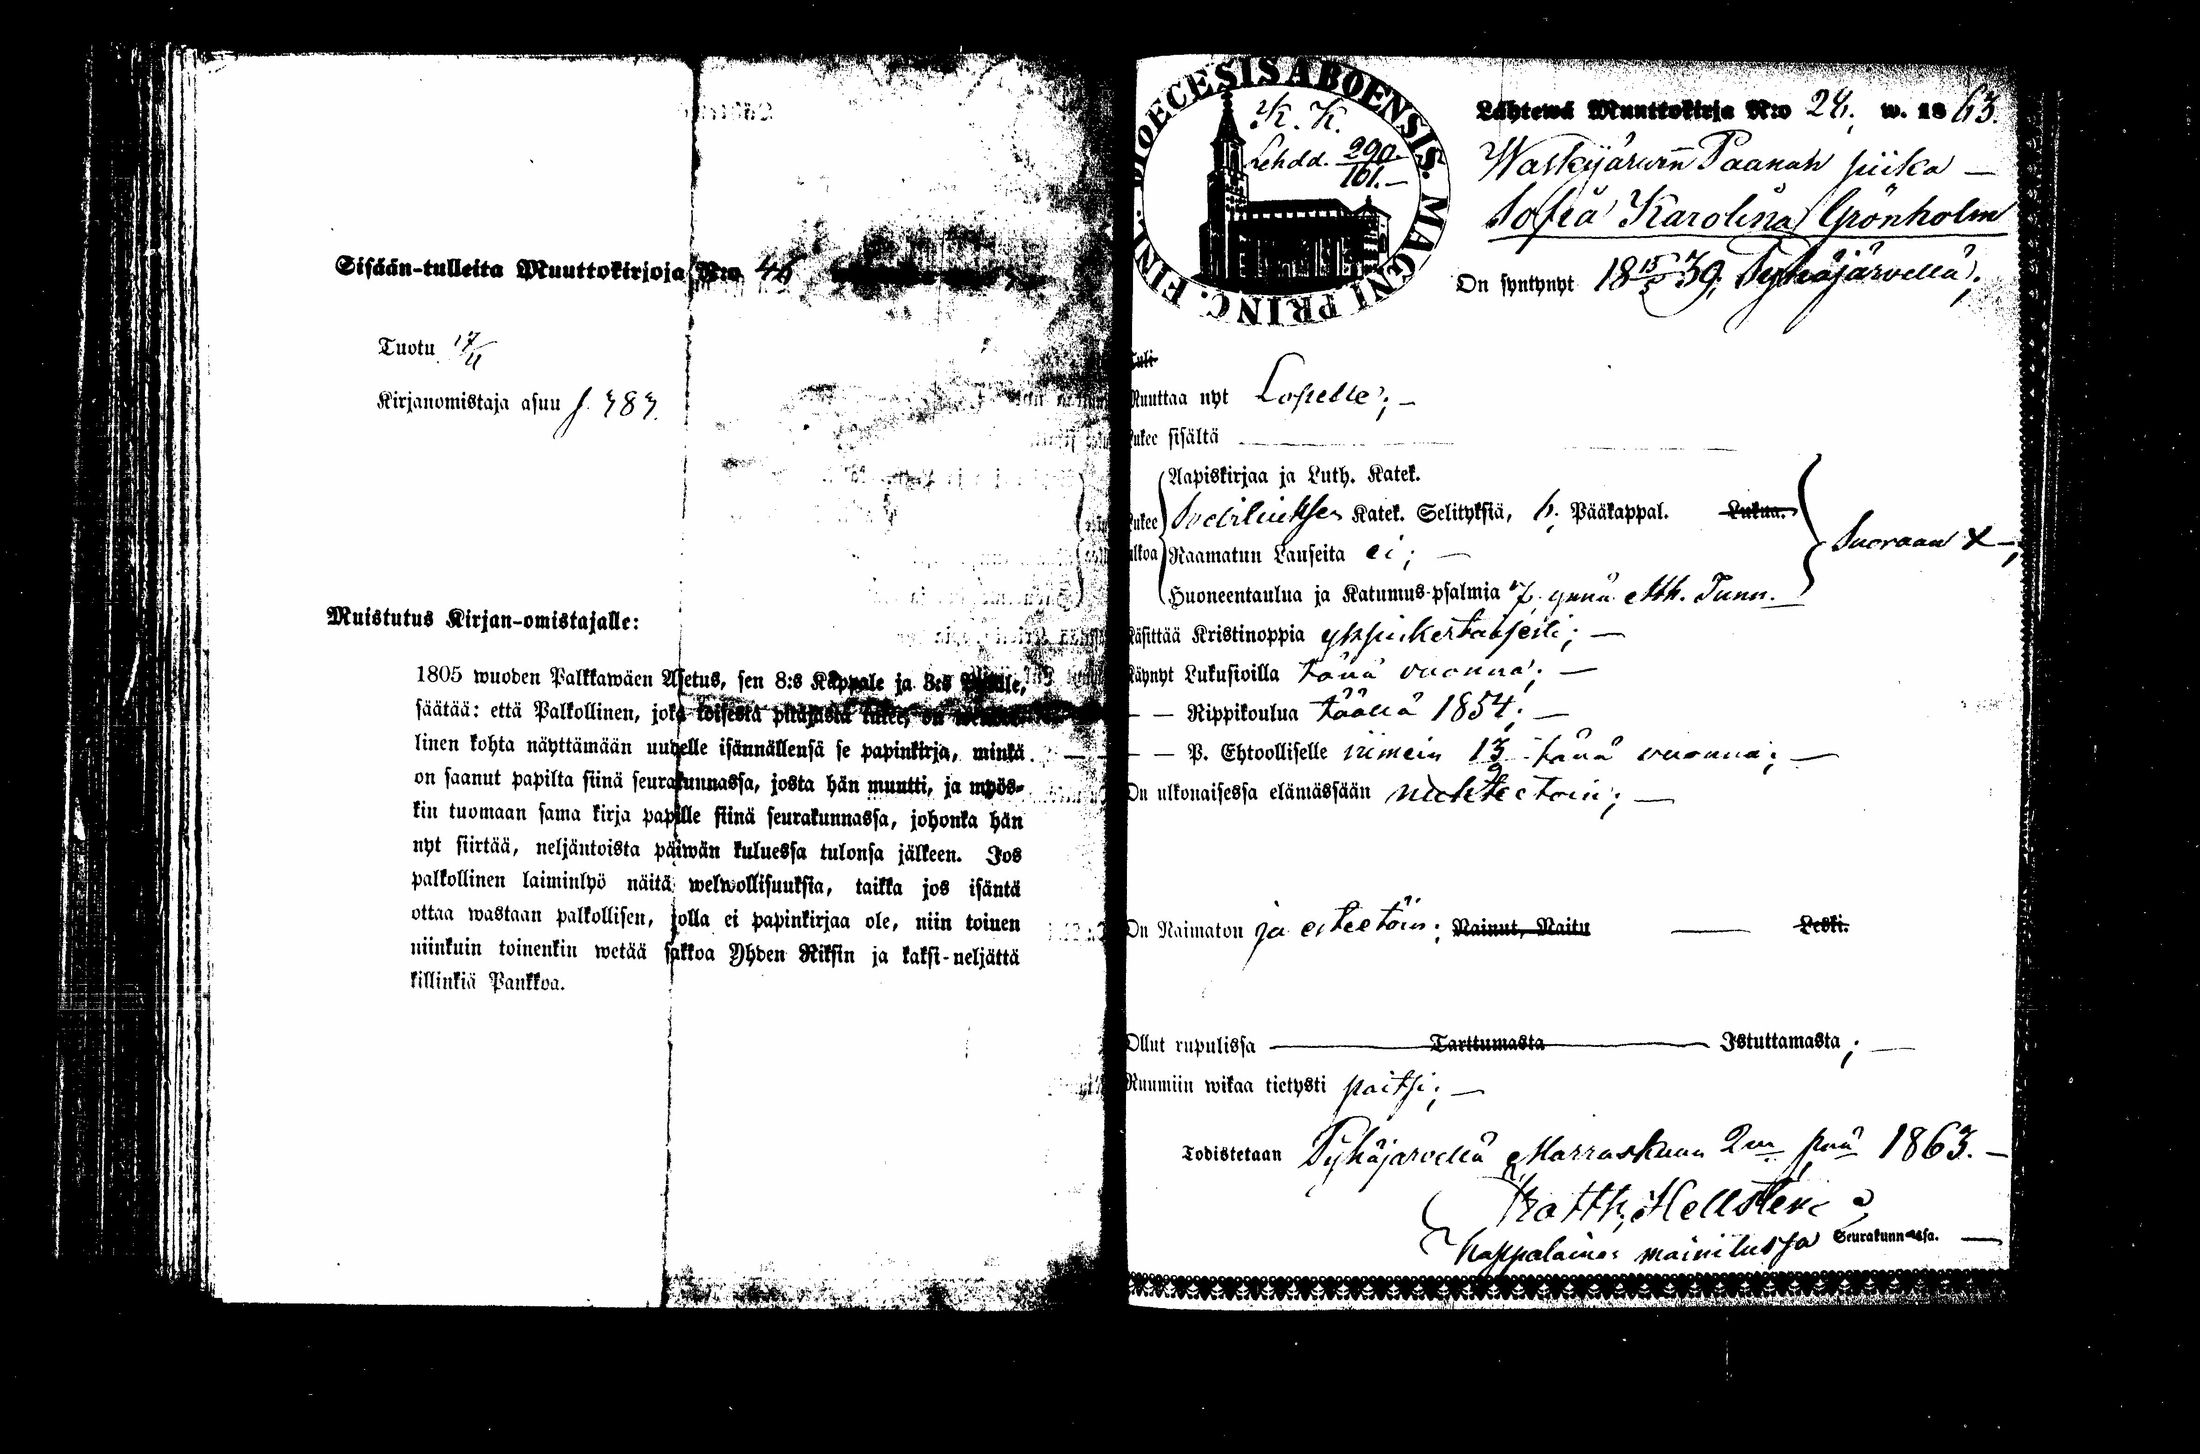 Sisään-tulleita Muuttokirjoja N:o 46
Tuotu 17/11
Kirjanomistaja asuu f. 383.
Muistutus Kirjan-omistajalle:
1805 wuoden Palkkawäen Asetus, sen 8:s Kappale ja 3:s
säätää: että Palkollinen, joka toisesta pitäjästä tulee, on
linen kohta näyttämään uudelle isännällensä se papinkirja, minkä
on saanut papilta siinä seurakunnassa, josta hän muutti, ja myös-
kin tuomaan sama kirja papille siinä seurakunnassa, johonka hän
nyt siirtää, neljäntoista päiwän kuluessa tulonsa jälkeen. Jos
palkollinen laiminlyö näitä welwollisuuksia, taikka jos isäntä
ottaa wastaan palkollisen, jolla ei papinkirjaa ole, niin toinen
niinkuin toinenkin wetää sakkoa Yhden Riksin ja kaksi-neljättä
killinkiä Pankkoa.
DIOECESIS ABOENSIS. MAGNI PRINC. FINL.
K. K.
Lehdd. 290.
161.—
Lähtewä Muuttokirja N:o 24. w. 1863.
Paanan piika —
Sofia Karolina Grönholm
On syntynyt 18 15/5 39. Pyhäjärvellä;
Tuli
Muuttaa nyt Lopelle; —
Lukee sisältä
Aapiskirjaa ja Luth. Katek.
Lukee Svebiliuksen Katek. Selityksiä, 6. Pääkappal. Lukua.
ulkoa Raamatun Lauseita ei; —
Suoraan x —;
Huoneentaulua ja Katumus-psalmia 7. ynnä Ath. Tunn.
Käsittää Kristinoppia yksinkertaisesti; —
Käynyt Lukusioilla tänä vuonna; —
— — Rippikoulua täällä 1854; —
— — P. Ehtoolliselle viimein 13/9 tänä vuonna; —
On ulkonaisessa elämässään nuhteetoin; —
On Naimaton ja esteetöin; Nainut, Naitu — Leski.
Ollut rupulissa — Tarttumasta — Istuttamasta; —
Ruumiin wikaa tietysti paitsi; —
Todistetaan Pyhäjärvellä Marraskuun 2na pnä 1863. —
Hellsten
Kappalainen mainitussa Seurakunnassa. —